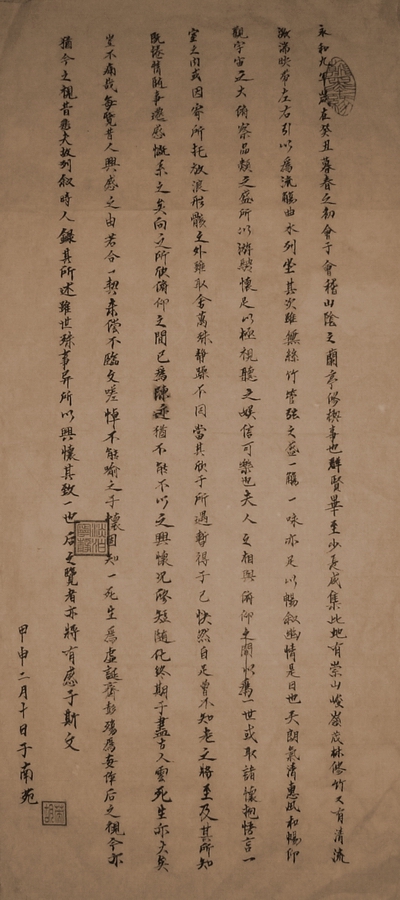 永和九年歲在癸丑暮春之初會于會稽山陰之蘭亭脩禊事也群賢畢至少長咸集此地有崇山峻嶺茂林脩竹又有清流
激湍映帶左右引以為流觴曲水列坐其次雖無絲竹管弦之盛一觴一詠亦足以暢敘幽情是日也天朗氣清惠風和暢仰
觀宇宙之大俯察品類之盛所以游騁懷足以極視聽之娛信可樂也夫人之相與俯仰之間以為一世或取諸懷抱悟言一
室之內或因寄所托放浪形骸之外雖取舍萬殊靜躁不同當其欣于所遇暫得于己快然自足曾不知老之將至及其所知
既倦情隨事遷感慨系之矣向之所欣俯仰之間已為陳迹猶不能不以之興懷況脩短隨化終期于盡古人云死生亦大矣
豈不痛哉每覽昔人興感之由若合一契未嘗不臨文嗟悼不能喻之于懷固知一死生為虛誕齊彭殤為妄作后之視今亦
猶今之視昔悲夫故列敘時人錄其所述雖世殊事異所以興懷其致一也后之覽者亦將有感于斯文
甲申二月十日于南苑